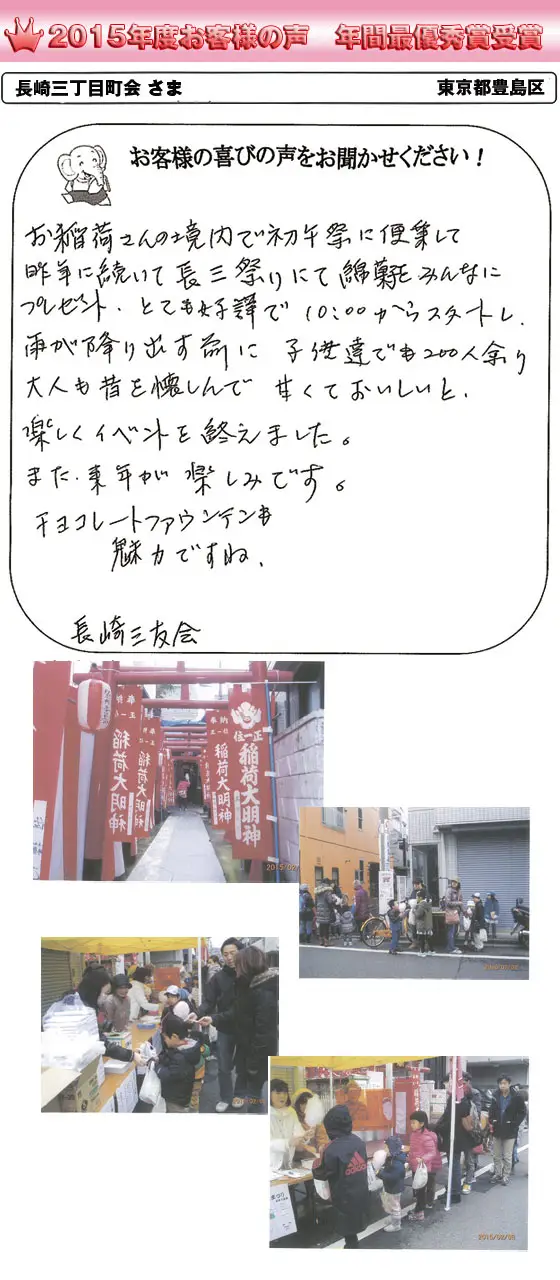 2015年度お客様の声 年間最優秀賞受賞
長崎三丁目町会 さま 東京都豊島区
お客様の喜びの声をお聞かせください！
お稲荷さんの境内で初午祭に便乗して
昨年に続いて長三祭りにて綿菓をみんなに
プレゼント．とても好評で 10:00からスタートし．
雨が降り出す前に 子供達でも200人余り
大人も昔を懐しんで 甘くておいしいと．
楽しくイベントを終えました。
また．来年が楽しみです。
チョコレートファウンテンも
魅力ですね．
長崎三友会
奉 正一位
稲荷大明神
奉納 正一位
稲荷大明神
正一位
稲荷大明神
2015/02
adidas
2015/02/08